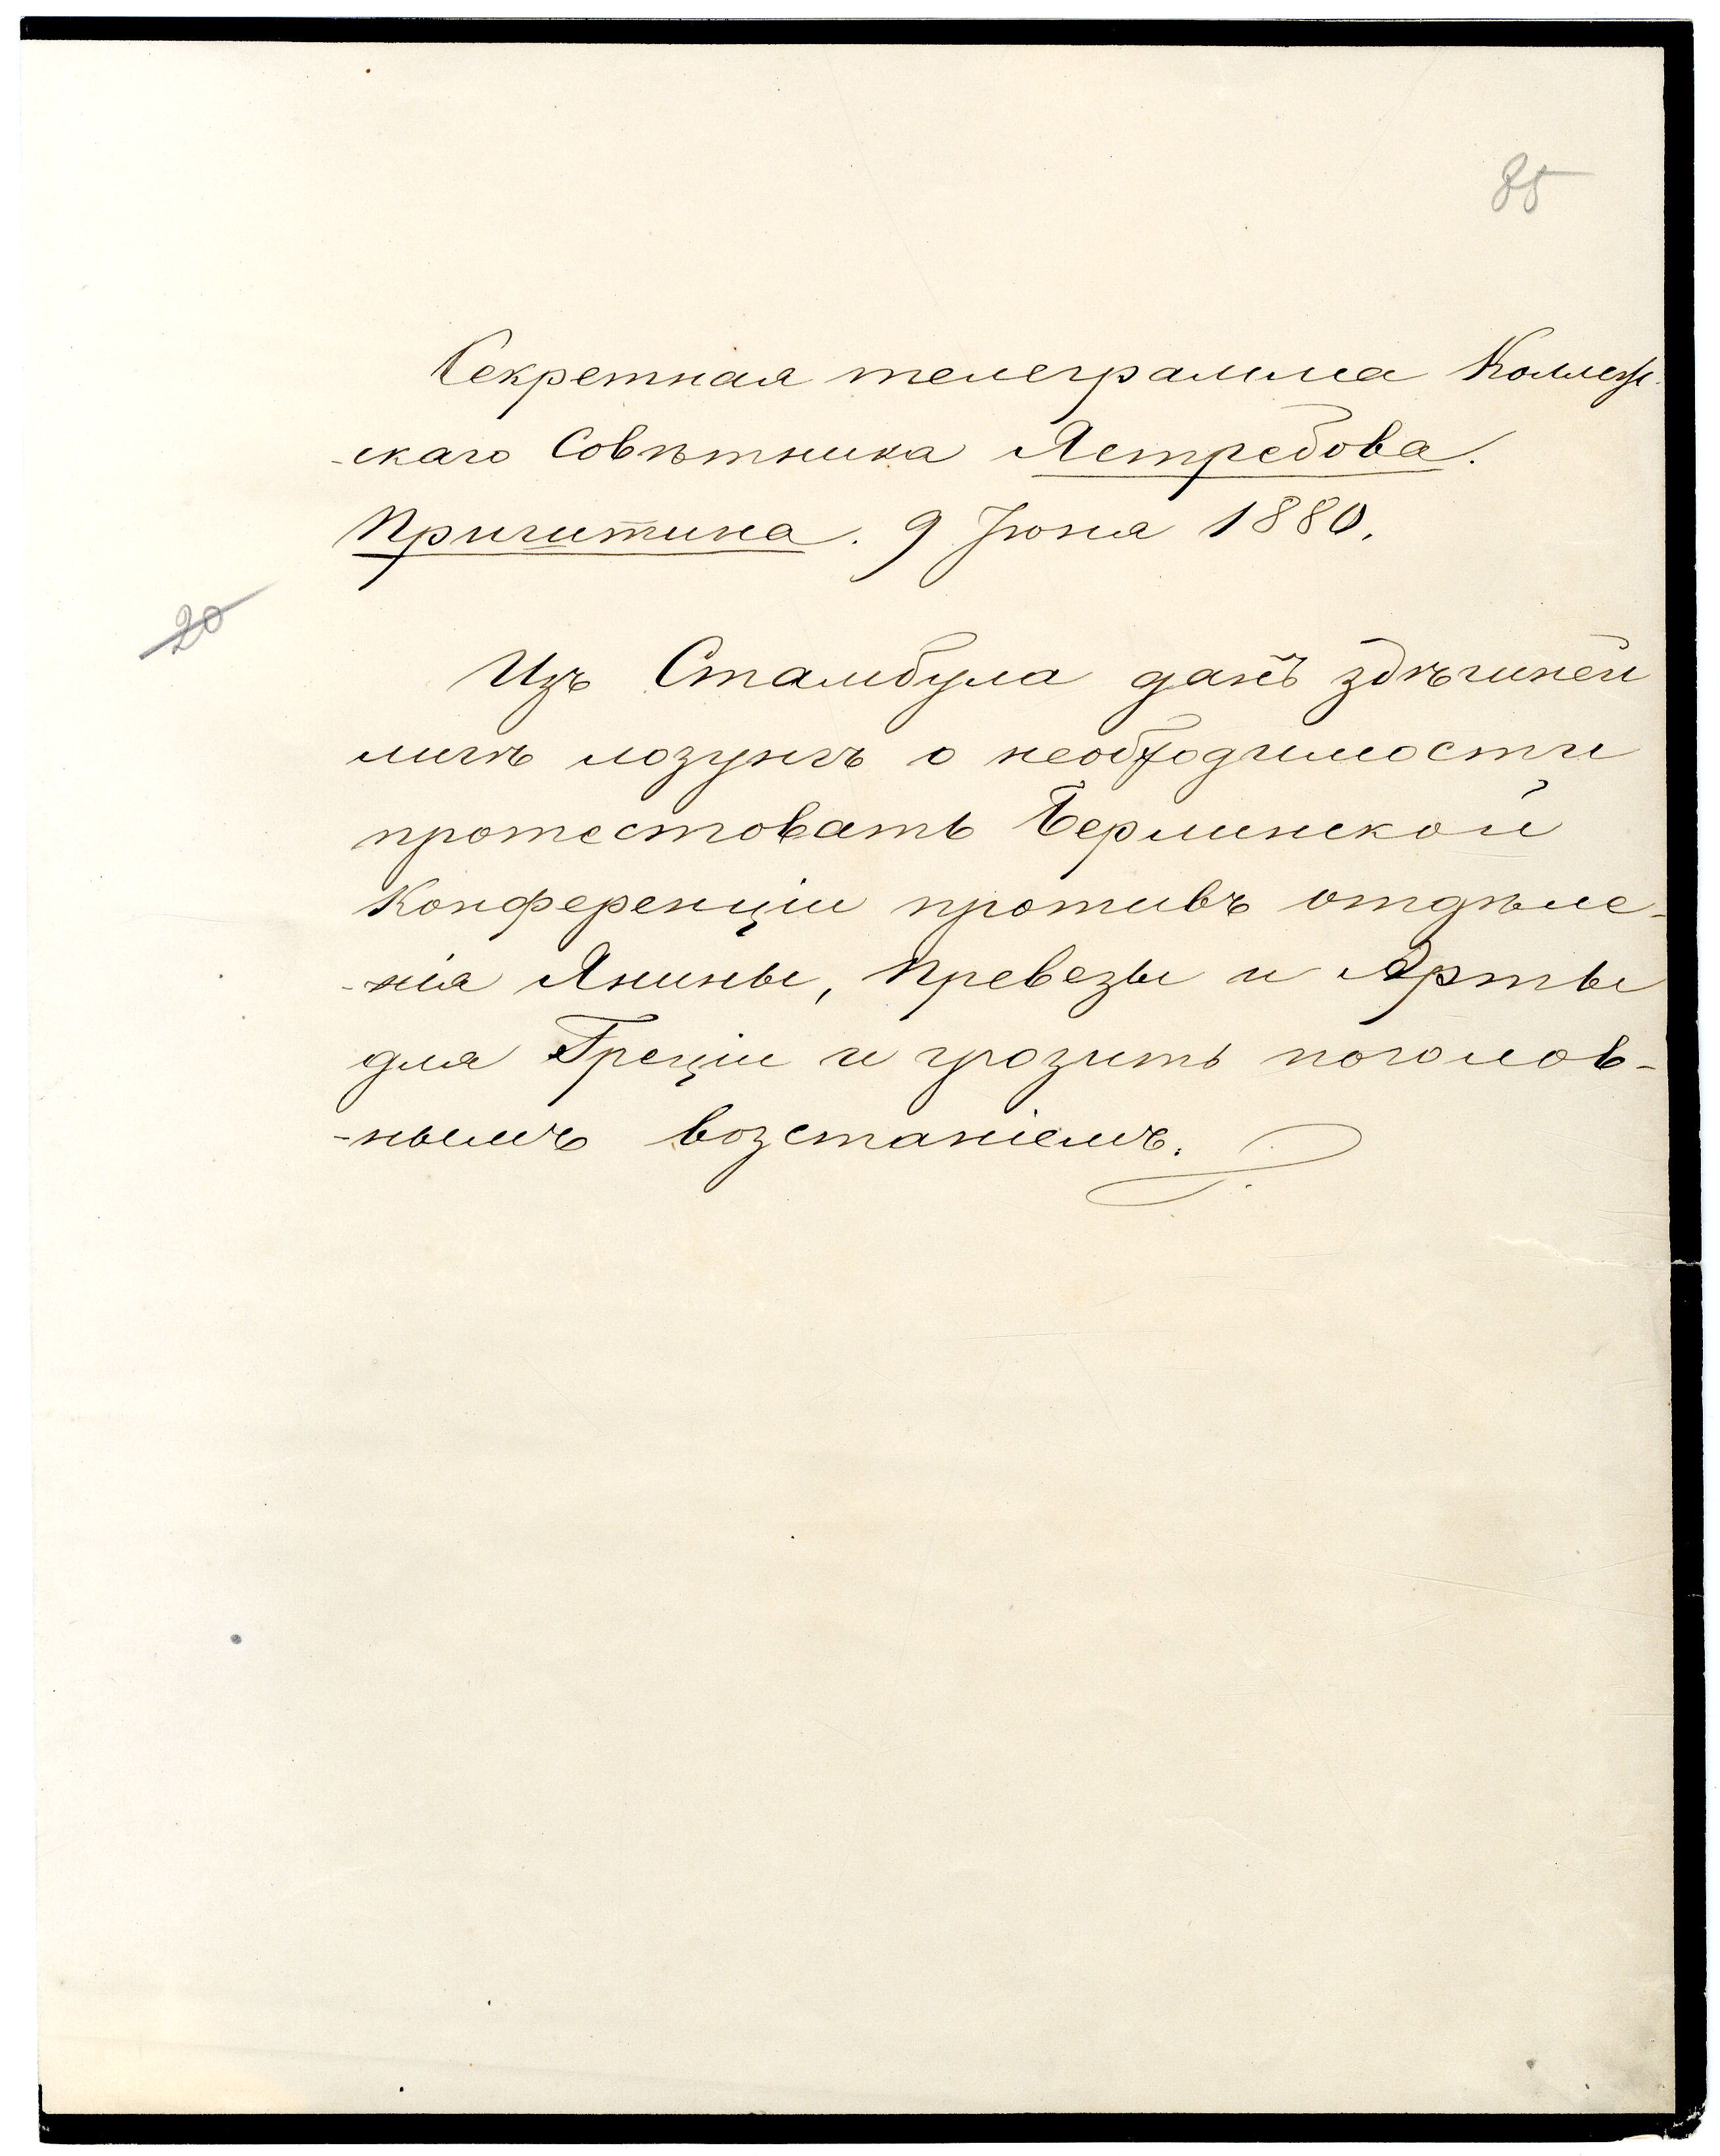 85
Секретная телеграмма Коллеж-
-скаго Совѣтника Ястребова.
Приштина. 9 Іюня 1880.
20
Изъ Стамбула данъ здѣшней
лигѣ лозунгъ о необходимости
протестовать Берлинской
Конференціи противъ отдѣле-
-нія Янины, Превезы и Арты
для Греціи и грозить поголов-
-нымъ возстаніемъ.